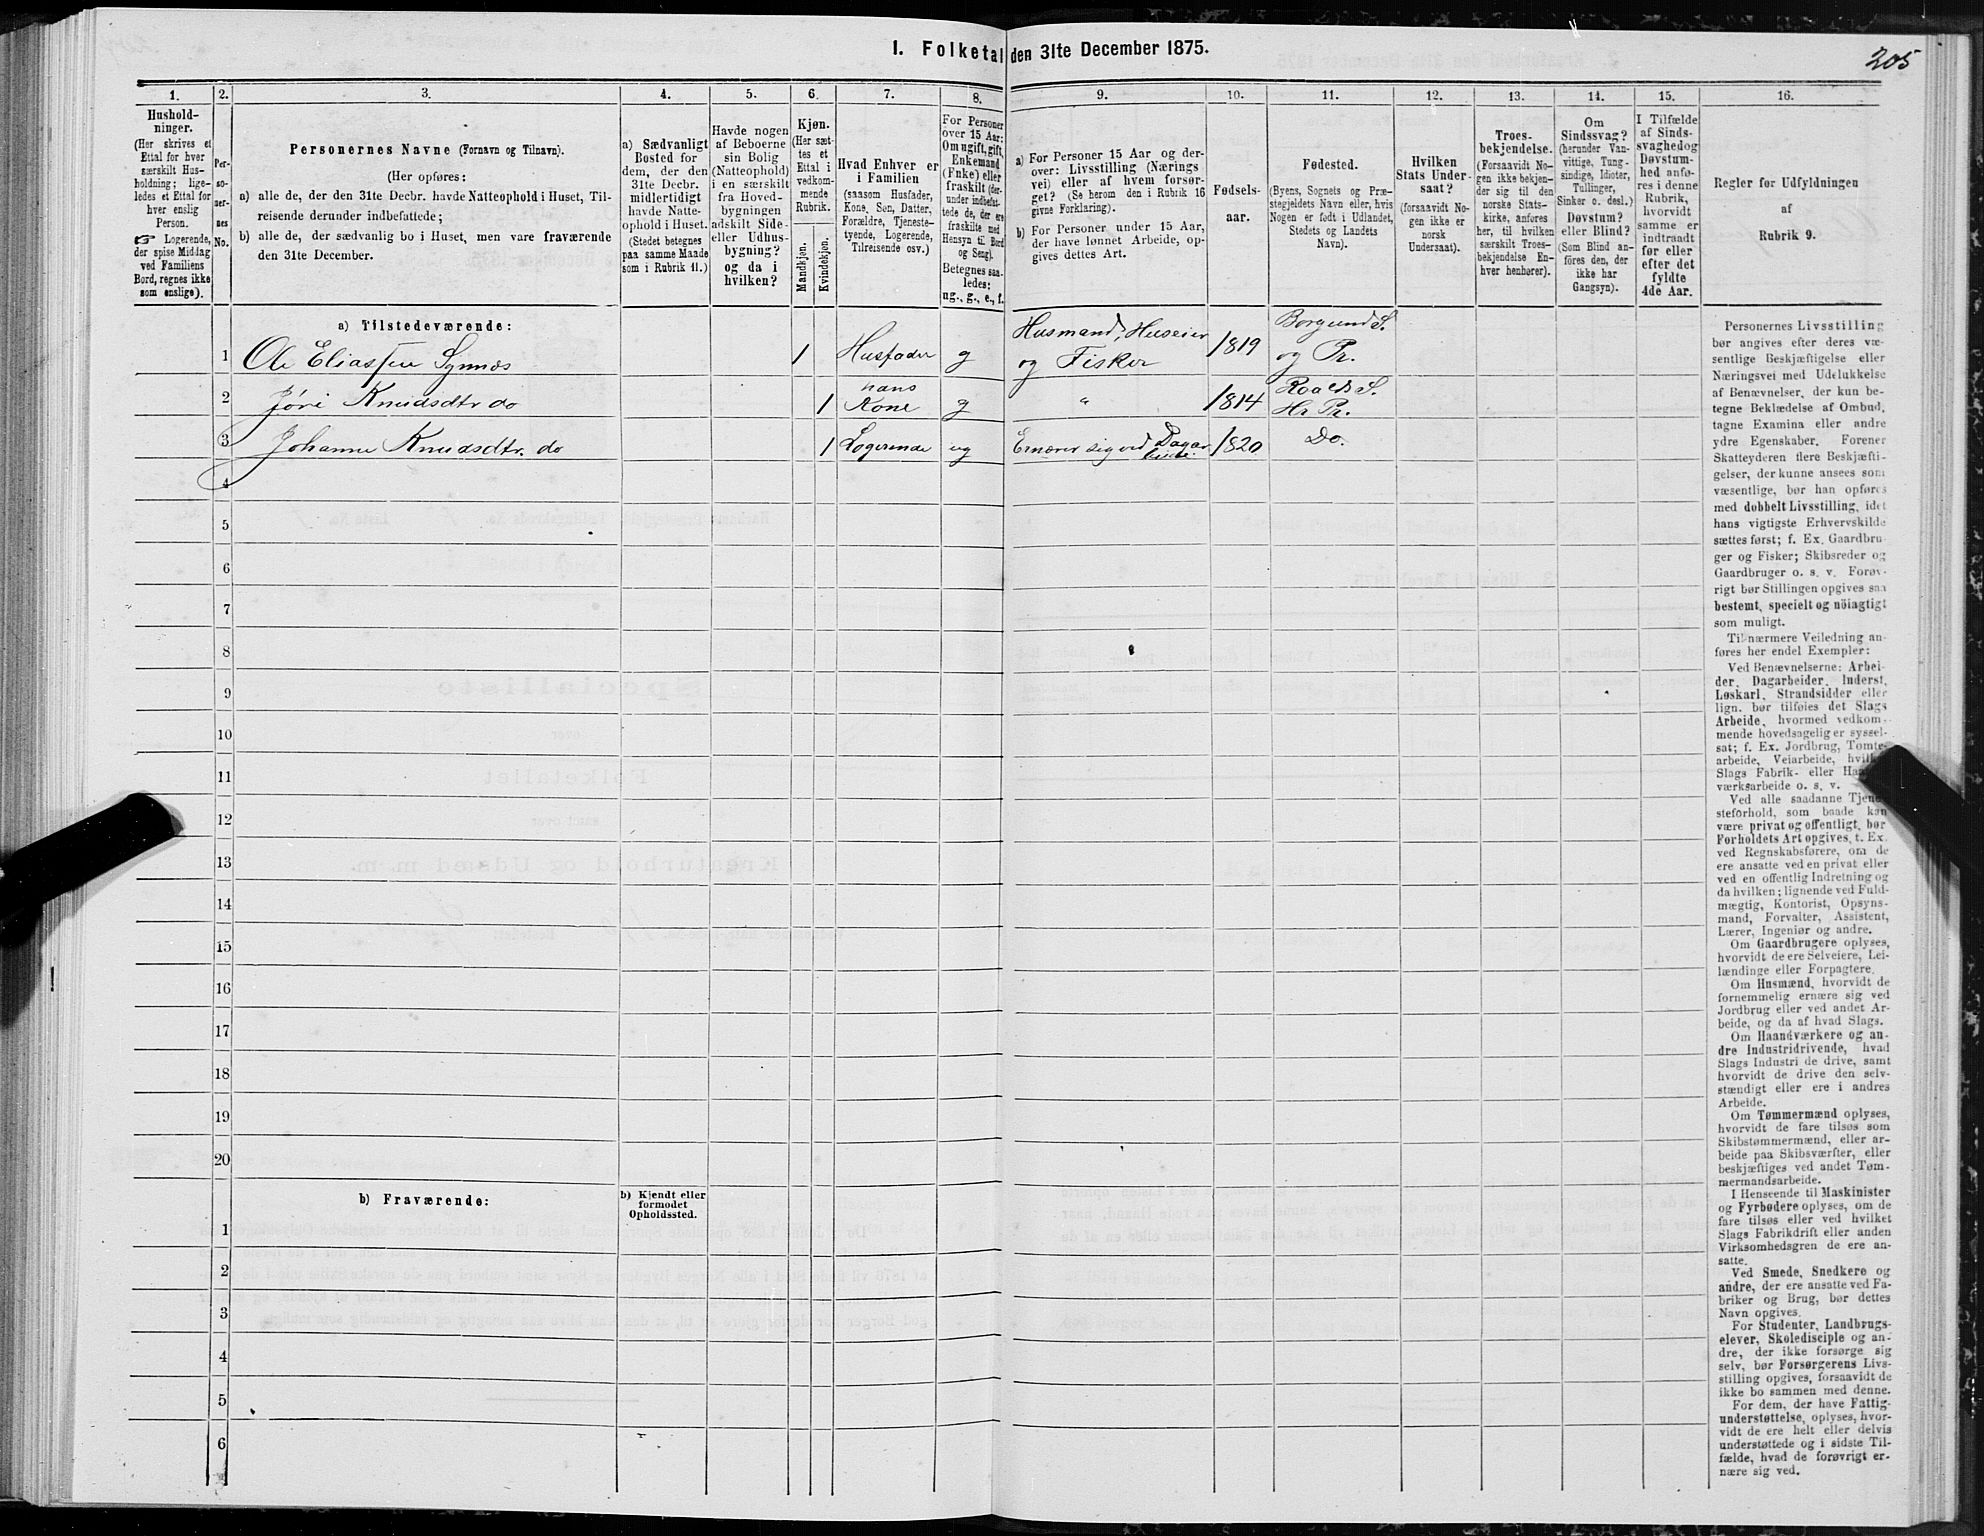 I. Folketal den 31te December 1875.
205
1.
2.
3.
4.
5.
6.
7.
8.
9.
10.
11.
12.
13.
14.
15.
16.
Hushold-
ninger.
(Her skrives et
Ettal for hver
særskilt Hus-
holdning; lige-
ledes et Ettal for
hver enslig
Person.
☞ Logerende,
der spise Middag
ved Familiens
Bord, regnes ikke
som enslige).
Per-
so-
ner-
nes
No.
Personernes Navne (Fornavn og Tilnavn).
(Her opføres:
a) alle de, der den 31te Decbr. havde Natteophold i Huset, Til-
reisende derunder indbefattede;
b) alle de, der sædvanlig bo i Huset, men vare fraværende
den 31te December.
a) Sædvanligt
Bosted for
dem, der den
31te Decbr.
midlertidigt
havde Natte-
ophold i Huset.
(Stedet betegnes
paa samme Maade
som i Rubrik 11.)
Havde nogen
af Beboerne
sin Bolig
(Natteophold)
i en særskilt
fra Hoved-
bygningen
adskilt Side-
eller Udhus-
bygning?
og da i
hvilken?
Kjøn.
(Her sæt-
tes et
Ettal i
vedkom-
mende
Rubrik.
Mandkjøn.
Kvindekjøn.
Hvad Enhver er
i Familien
(saasom Husfader,
Kone, Søn, Datter,
Forældre, Tjeneste-
tyende, Logerende,
Tilreisende osv.)
For Personer
over 15 Aar:
Om ugift, gift,
Enkemand
(Enke) eller
fraskilt (der-
under indbefat-
tede de, der ere
fraskilte med
Hensyn til Bord
og Seng).
Betegnes saa-
ledes:
ug., g., e., f.
a) For Personer 15 Aar og der-
over: Livsstilling (Nærings
vei) eller af hvem forsør-
get? (Se herom den i Rubrik 16
givne Forklaring).
b) For Personer under 15 Aar,
der have lønnet Arbeide, op-
gives dettes Art.
Fødsels-
aar.
Fødested.
(Byens, Sognets og Præ-
stegjeldets Navn eller, hvis
Nogen er født i Udlandet,
Stedets og Landets
Navn).
Hvilken
Stats Under-
saat?
(forsaavidt No-
gen ikke er
norsk
Undersaat).
Troes-
bekjendelse.
(Forsaavidt No-
gen ikke bekjen-
der sig til den
norske Stats-
kirke, anføres
her, til hvilken
særskilt Troes-
bekjendelse En-
hver henhører).
Om
Sindssvag?
(herunder Van-
vittige, Tung-
sindige, Idioter,
Tullinger,
Sinker o. desl.)
Døvstum?
eller Blind?
(Som Blind an-
føres den, der
ikke har
Gangsyn).
I Tilfælde
af Sinds-
svaghed og
Døvstum-
hed anfø-
res i denne
Rubrik,
hvorvidt
samme er
indtraadt
før eller
efter det
fyldte
4de Aar.
Regler for Udfyldningen
af
Rubrik 9.
a) Tilstedeværende:
1 Ole Eliassen Synnæs 1 Husfader g Husmand, Huseier og Fisker 1819 Borgund S. og Pr.
2 Jøri Knudsdtr do 1 hans Kone g " 1814 Roalds S. Hr Pr.
3 Johanne Knudsdtr. do 1 Logerende ug Ernærer sig ved Dagarbeide. 1820 Do.
4
5
6
7
8
9
10
11
12
13
14
15
16
17
18
19
20
b) Fraværende:
b) Kjendt eller
formodet
Opholdssted.
1
2
3
4
5
6
Personernes Livsstilling
bør angives efter deres væ-
sentlige Beskjæftigelse eller
Næringsvei med Udelukkelse
af Benævnelser, der kun be-
tegne Beklædelse af Ombud,
tagne Examina eller andre
ydre Egenskaber. Forener
Skatteyderen flere Beskjæfti-
gelser, der kunne ansees som
væsentlige, bør han opføres
med dobbelt Livsstilling, idet
hans vigtigste Erhvervskilde
sættes først; f. Ex. Gaardbru-
ger og Fisker; Skibsreder og
Gaardbruger o. s. v. Forøv-
rigt bør Stillingen opgives saa
bestemt, specielt og nöiagtigt
som muligt.
Til nærmere Veiledning an-
føres her endel Exempler:
Ved Benævnelserne: Arbei-
der, Dagarbeider, Inderst,
Løskarl, Strandsidder eller
lign. bør tilføies det Slags
Arbeide, hvormed vedkom-
mende hovedsagelig er syssel-
sat; f. Ex. Jordbrug, Tomte-
arbeide, Veiarbeide, hvilket
Slags Fabrik- eller Haand-
værksarbeide o. s. v.
Ved alle saadanne Tjene-
steforhold, som baade kan
være privat og offentligt, bør
Forholdets Art opgives, t. Ex.
ved Regnskabsførere, om de
ere ansatte ved en privat eller
ved en offentlig Indretning og
da hvilken; lignende ved Fuld-
mægtig, Kontorist, Opsyns-
mand, Forvalter, Assistent,
Lærer, Ingeniør og andre.
Om Gaardbrugere oplyses,
hvorvidt de ere Selveiere, Lei-
lændinge eller Forpagtere.
Om Husmænd, hvorvidt de
fornemmelig ernære sig ved
Jordbrug eller ved andet Ar-
beide, og da af hvad Slags.
Om Haandværkere og an-
dre Industridrivende, hvad
Slags Industri de drive, samt
hvorvidt de drive den selv-
stændigt eller ere i andres
Arbeide.
Om Tømmermænd oplyses,
hvorvidt de fare tilsøs som
Skibstømmermænd, eller ar-
beide paa Skibsværfter, eller
beskjæftiges ved andet Tøm-
mermandsarbeide.
I Henseende til Maskinister
og Fyrbødere oplyses, om de
fare tilsøs eller ved hvilket
Slags Fabrikdrift eller anden
Virksomhedsgren de ere an-
satte.
Ved Smede, Snedkere og
andre, der ere ansatte ved Fa-
briker og Brug, bør dettes
Navn opgives.
For Studenter, Landbrugs-
elever, Skoledisciple og an-
dre, der ikke forsørge sig
selv, bør Forsørgerens Livs-
stilling opgives, forsaavidt de
ikke bo sammen med denne.
For dem, der have Fattig-
understøttelse, oplyses, hvor-
vidt de ere helt eller delvis
understøttede og i sidste Til-
fælde, hvad de forøvrigt er-
nære sig ved.